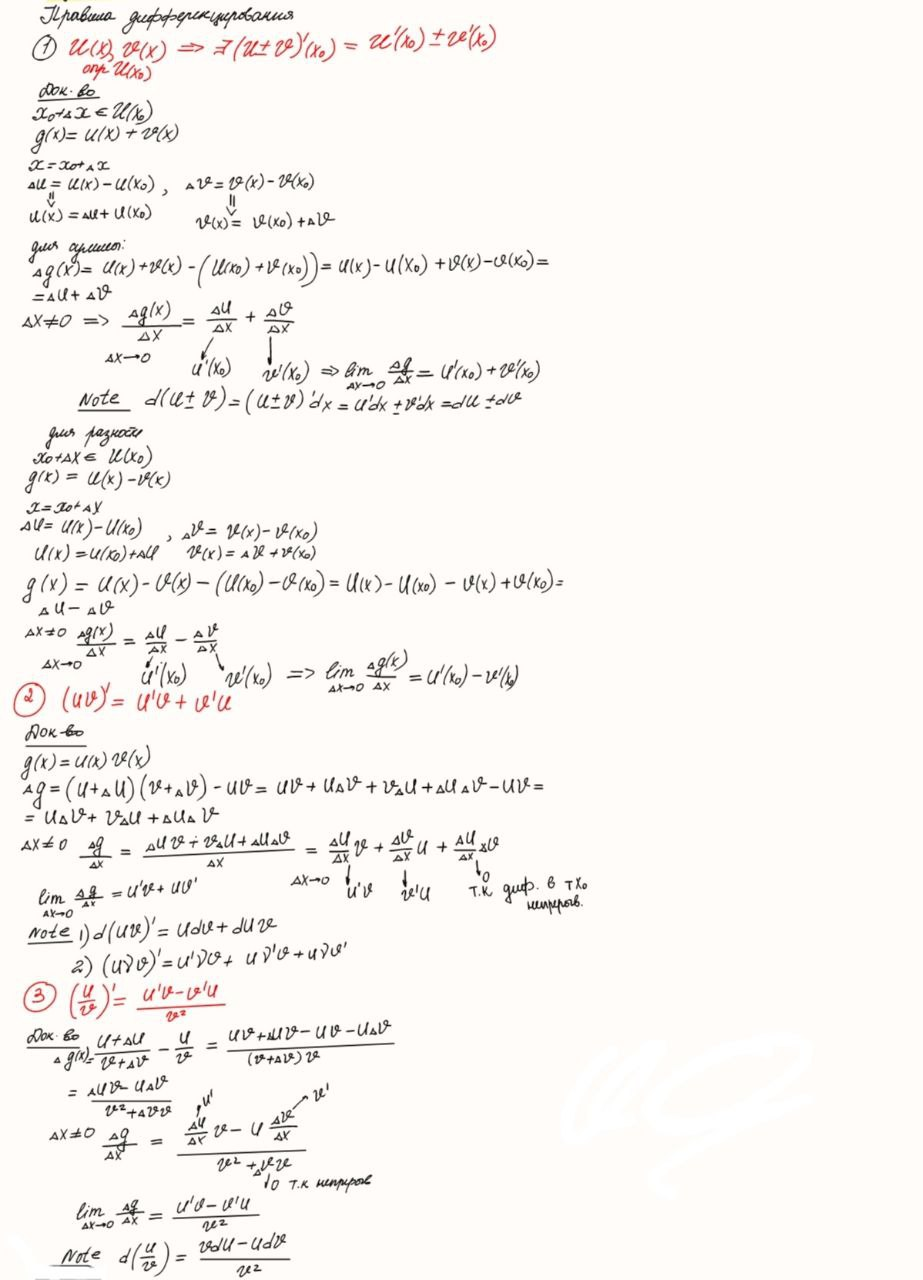 Правила дифференцирования
① U(x), v(x) => ∃(U±v)'(x₀) = U'(x₀) ± v'(x₀)
опр U(x₀)
Док-во
x₀+Δx ∈ U(x₀)
g(x) = U(x) + v(x)
x = x₀+Δx
ΔU = U(x) - U(x₀) , Δv = v(x) - v(x₀)
U(x) = ΔU + U(x₀) v(x) = v(x₀) + Δv
для суммы:
Δg(x) = U(x) + v(x) - (U(x₀) + v(x₀)) = U(x) - U(x₀) + v(x) - v(x₀) =
= ΔU + Δv
Δx≠0 => Δg(x)/Δx = ΔU/Δx + Δv/Δx
Δx→0 U'(x₀) v'(x₀) => lim Δx→0 Δg/Δx = U'(x₀) + v'(x₀)
Note d(U± v) = (U±v)'dx = U'dx ± v'dx = dU ± dv
для разности
x₀+Δx ∈ U(x₀)
g(x) = U(x) - v(x)
x = x₀+Δx
ΔU = U(x) - U(x₀) , Δv = v(x) - v(x₀)
U(x) = U(x₀) + ΔU v(x) = Δv + v(x₀)
g(x) = U(x) - v(x) - (U(x₀) - v(x₀) = U(x) - U(x₀) - v(x) + v(x₀) =
ΔU - Δv
Δx≠0 Δg(x)/Δx = ΔU/Δx - Δv/Δx
Δx→0 U'(x₀) v'(x₀) => lim Δx→0 Δg(x)/Δx = U'(x₀) - v'(x₀)
② (Uv)' = U'v + v'U
Док-во
g(x) = U(x) v(x)
Δg = (U+ΔU)(v+Δv) - Uv = Uv + UΔv + vΔU + ΔUΔv - Uv =
= UΔv + vΔU + ΔUΔv
Δx≠0 Δg/Δx = (ΔUv + vΔU + ΔUΔv)/Δx = ΔU/Δx v + Δv/Δx U + ΔU/Δx Δv
lim Δx→0 Δg/Δx = U'v + Uv' Δx→0 U'v v'U 0 т.к диф. в т x₀ непрерыв.
Note 1) d(Uv)' = Udv + dUv
2) (UVv)' = U'Vv + UV'v + UVv'
③ (U/v)' = (U'v - v'U)/v²
Док-во Δg(x) = (U+ΔU)/(v+Δv) - U/v = (Uv + ΔUv - Uv - UΔv)/((v+Δv)v)
= (ΔUv - UΔv)/(v²+Δvv)
Δx≠0 Δg/Δx = (ΔU/Δx v - U Δv/Δx)/(v² + Δvv) U' v'
0 т.к непрерыв
lim Δx→0 Δg/Δx = (U'v - v'U)/v²
Note d(U/v) = (vdU - Udv)/v²